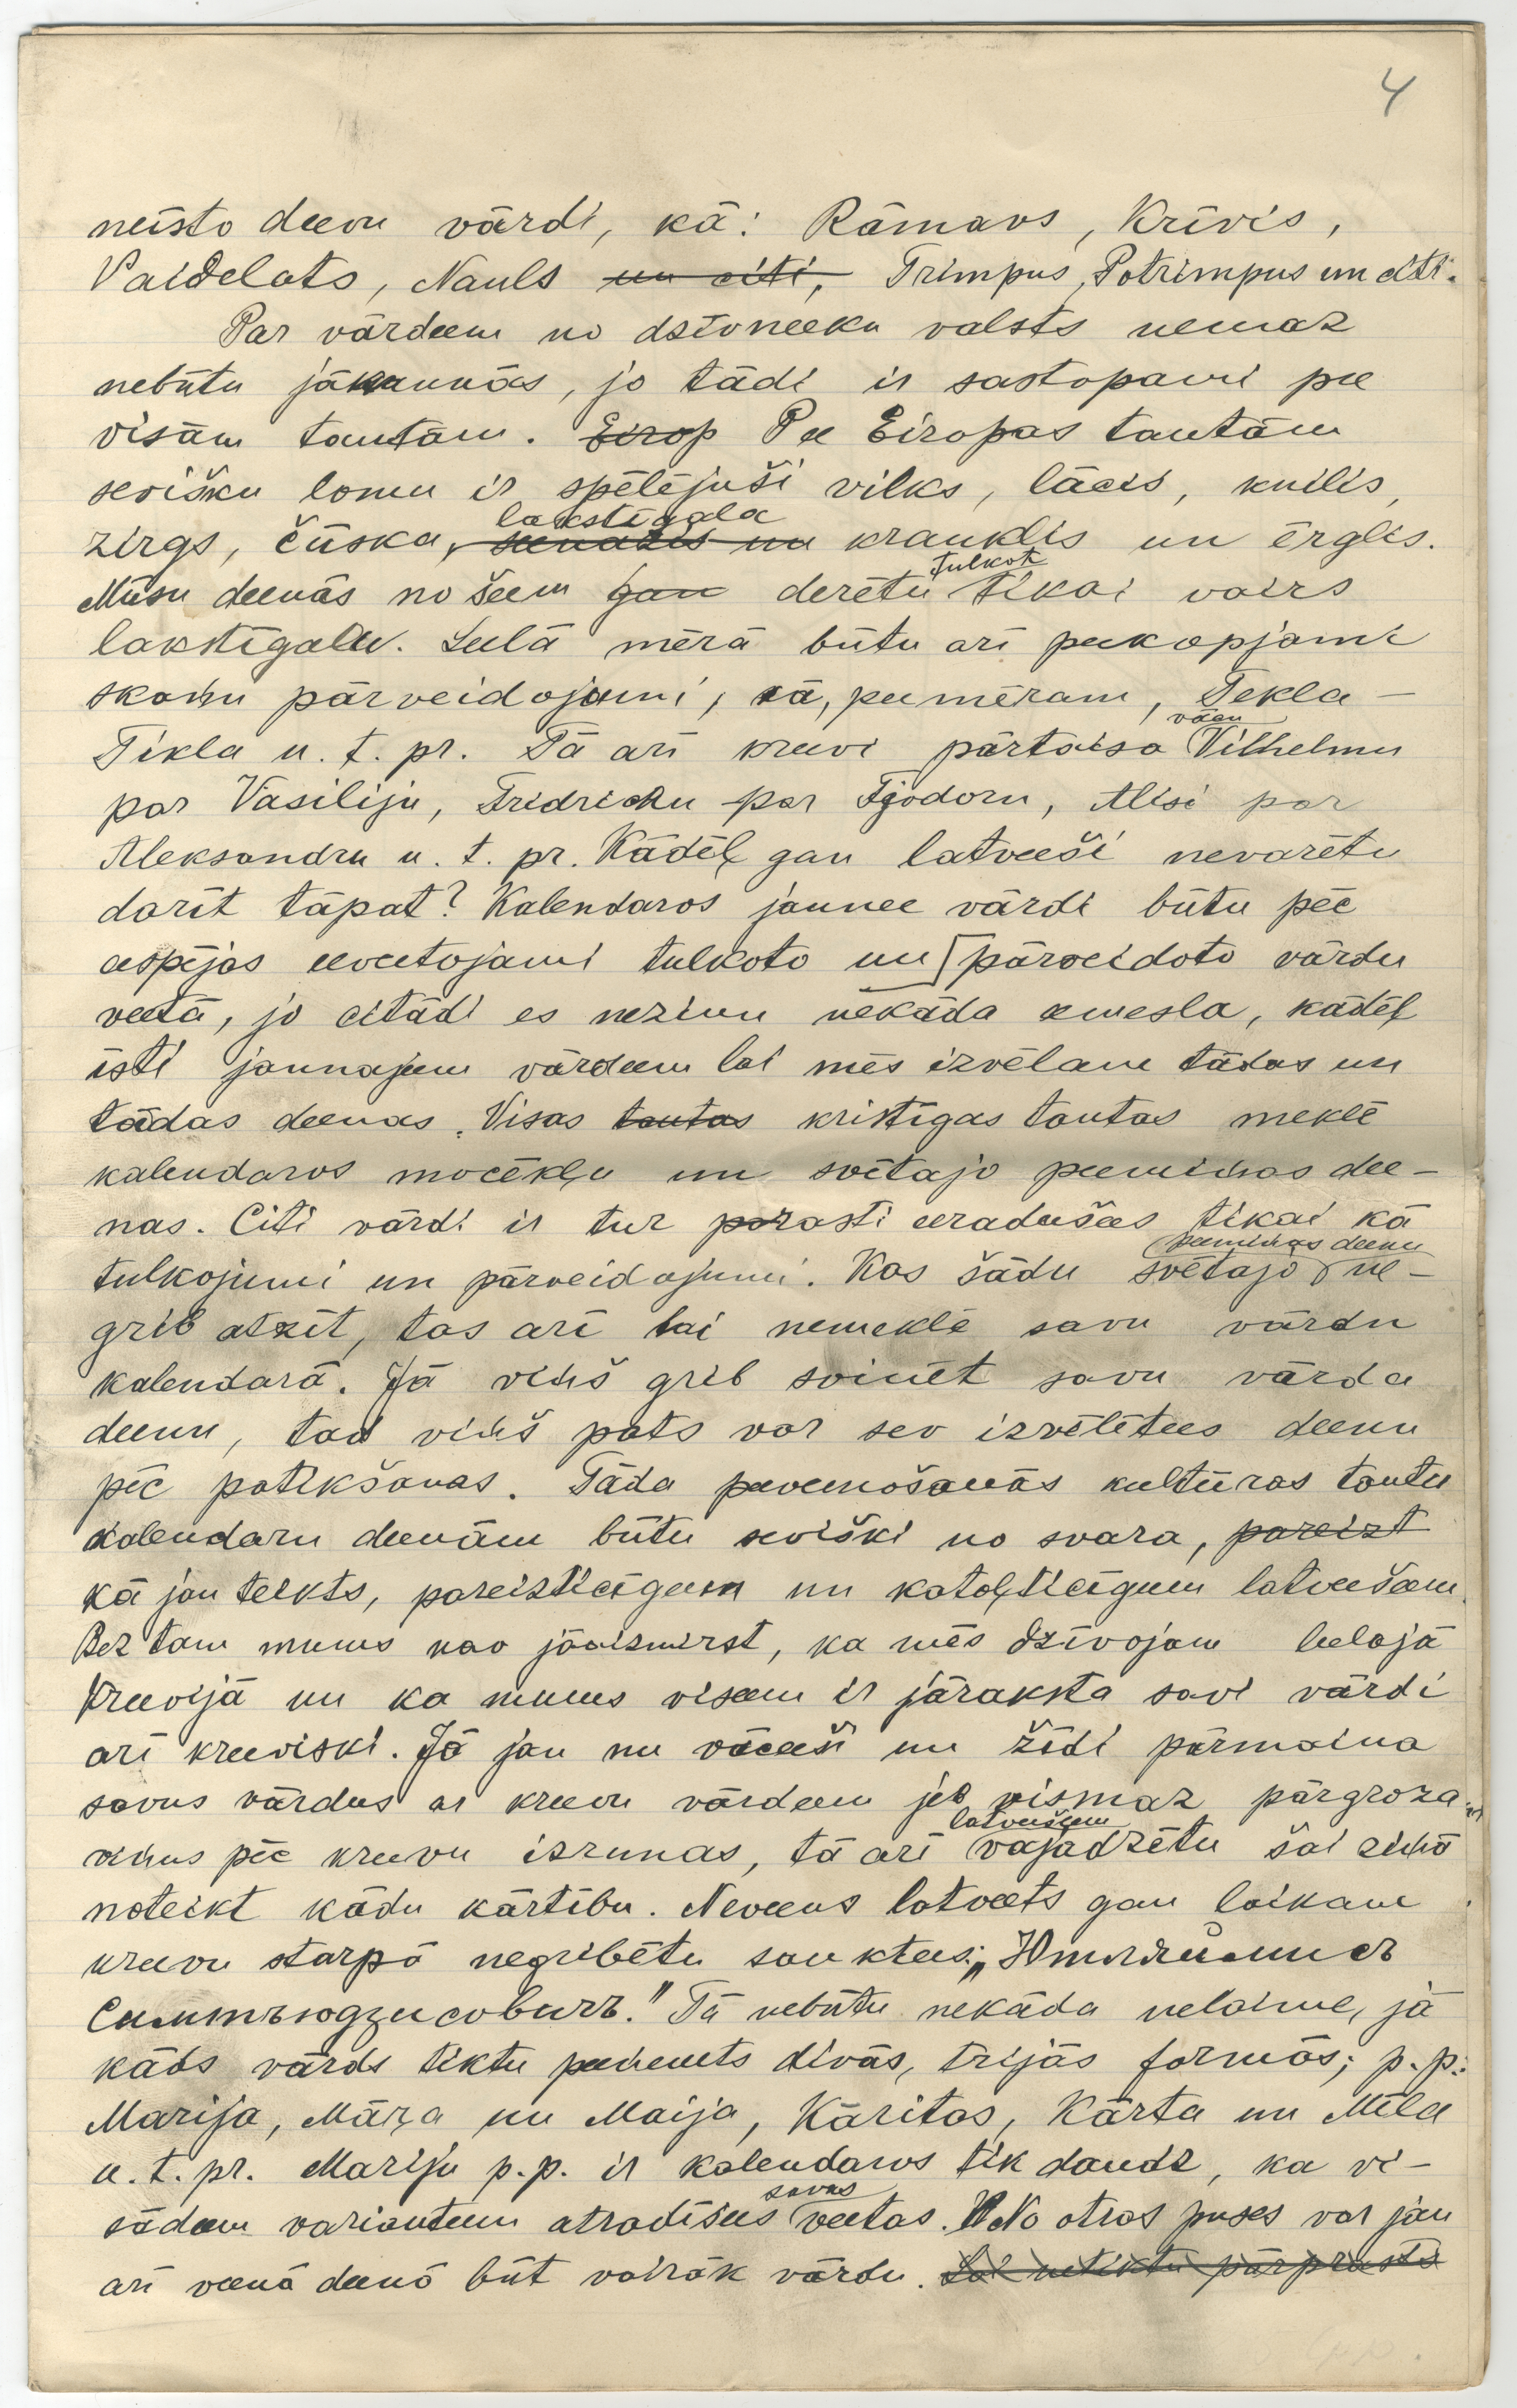 4
neīsto deevu vārdi, kā: Rāmavs, Krīvis,
Vaidelots, Nauls un citi, Trimpus, Potrimpus un citi.
Par vārdeem no dzīvneeku valsts nemaz
nebūtu jākaunās, jo tādi ir sastopami pee
visām tautām. Eirop Pee Eiropas tautām
sevišku lomu ir spēlējuši vilks, lācis, kuilis,
lakstīgala
zirgs, čūska, un krauklis un ērglis.
tulkot
Mūsu deenās no šeem gan derētu tikai vairs
lakstīgalu. Leelā mērā būtu arī peekopjami
skaņu pārveidojumi, kā, peemēram, Tekla —
vācu
Tikla u. t. pr. Tā arī kreevi pārtaisa Vilhelmu
par Vasiliju, Fridrichu par Fjodoru, Alisi par
Aleksandru u. t. pr. Kādēļ gan latveeši nevarētu
darīt tāpat? Kalendaros jaunee vārdi būtu pēc
eespējas eeveetojami tulkoto un pārveidoto vārdu
veetā, jo citādi es nezinu nekāda eemesla, kādēļ
īsti jaunajeem vārdeem lai mēs izvēlam tādas un
tādas deenas. Visas tautas kristīgas tautas meklē
kalendaros mocēkļu un svētajo peemiņas dee-
nas. Citi vārdi ir tur parasti eeradušees tikai kā
peemiņas deenu
tulkojumi un pārveidojumi. Kas šādu svētajo ne-
grib atzīt, tas arī lai nemeklē savu vārdu
kalendarā. Jā viņš grib svinēt savu vārda
deenu, tad viņš pats var sev izvēlētees deenu
pēc patikšanas. Tāda peevenošanās kultūras tautu
kalendaru deenām būtu seviški no svara, pareizt
kā jau teikts, pareizticīgeem un katoļticīgeem latveešeem.
Bez tam mums nav jāaizmirst, ka mēs dzīvojam leelajā
Kreevijā un ka mums viseem ir jāraksta savi vārdi
arī kreeviski. Jā jau nu vāceeši un žīdi pārmaina
savus vārdus ar kreevu vārdeem jeb vismaz pārgroza
latveešeem
viņus pēc kreevu izrunas, tā arī vajadzētu šai ziņā
noteikt kādu kārtību. Neveens latveets gan laikam
kreevu starpā negribētu sauktees:
Tā nebūtu nekāda nelaime, jā
kāds vārds tiktu peeņemts divās, trijās formās; p. p.:
Marija, Māŗa un Maija, Kāritas, Kārta un Mīla
u. t. pr. Mariju p. p. ir kalendaros tik daudz, ka vi-
savas
sādeem varianteem atradīsees veetas. No otras puses var jau
arī veenā deenā būt vairāk vārdu. Lai netiktu pārprasts